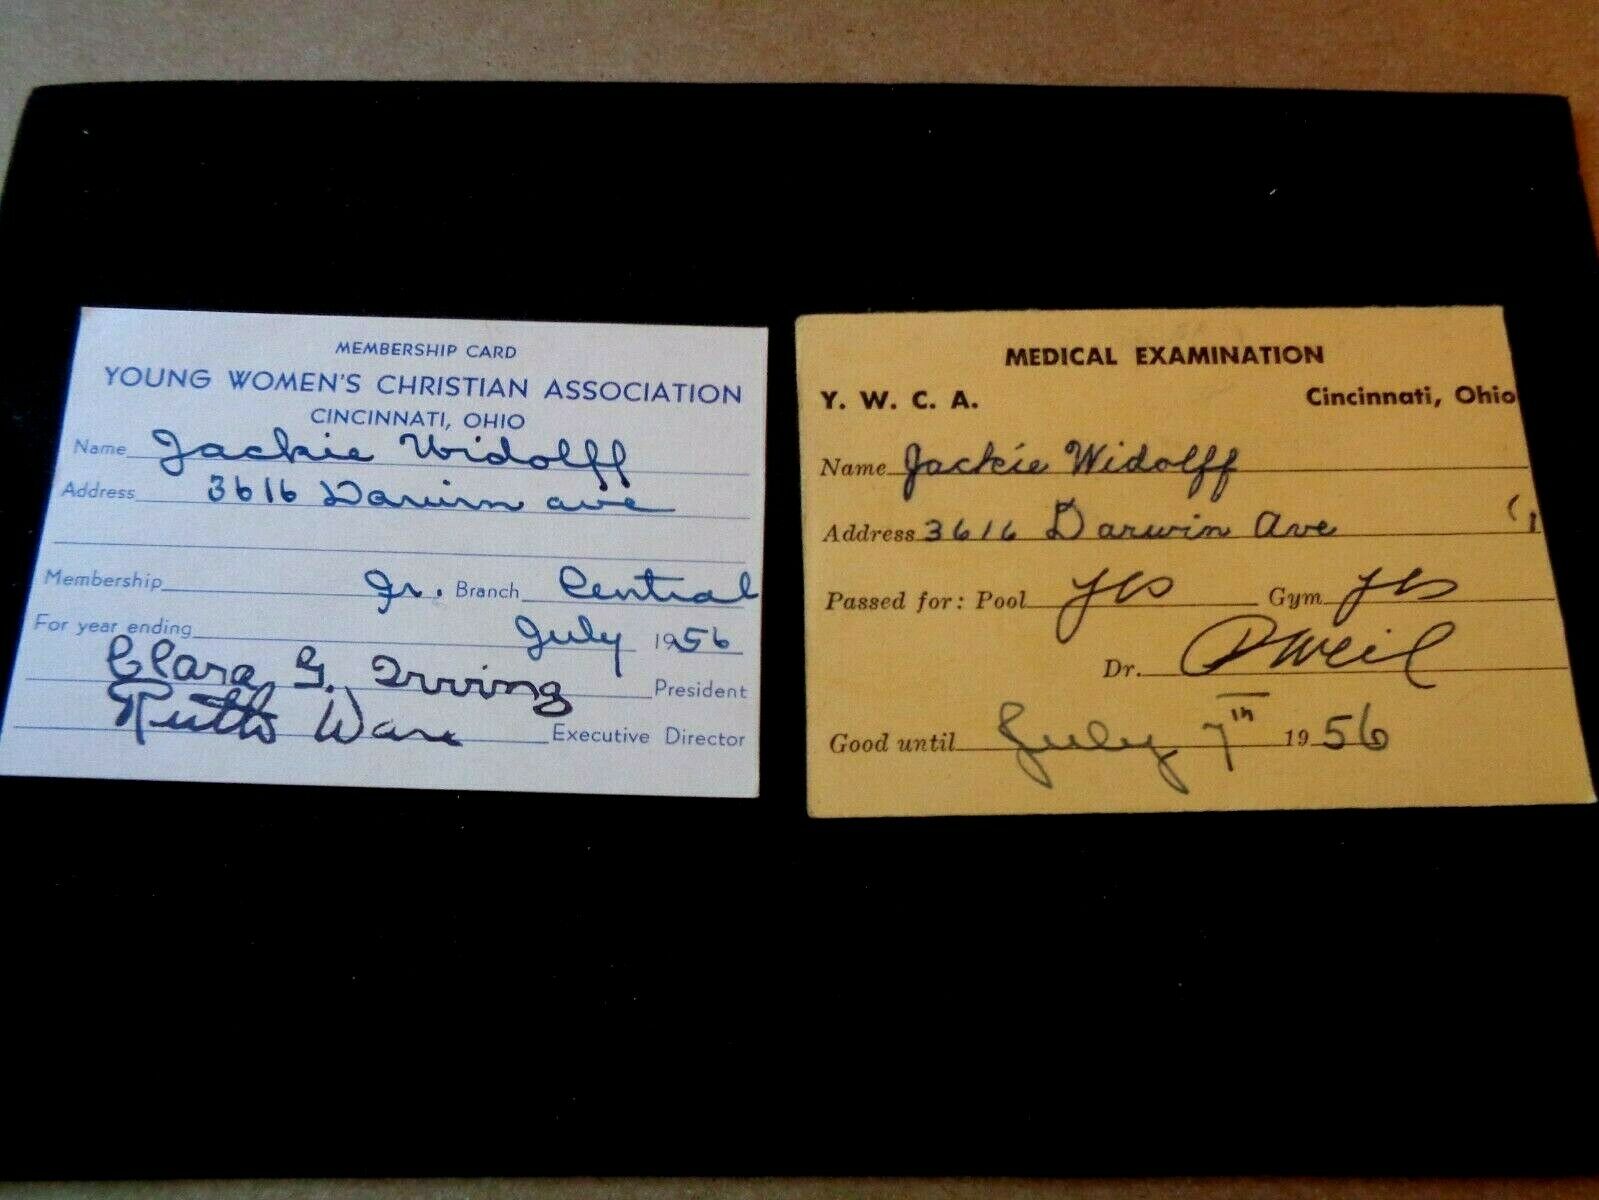 MEMBERSHIP CARD
YOUNG WOMEN'S CHRISTIAN ASSOCIATION
CINCINNATI, OHIO
Name Jackie Widolff
Address 3616 Darwin ave
Membership Jr. Branch Central
For year ending July 1956
Clara G. Irving President
Ruth Ware Executive Director
MEDICAL EXAMINATION
Y. W. C. A. Cincinnati, Ohio
Name Jackie Widolff
Address 3616 Darwin Ave
Passed for: Pool yes Gym yes
Dr. Weil
Good until July 7th 1956